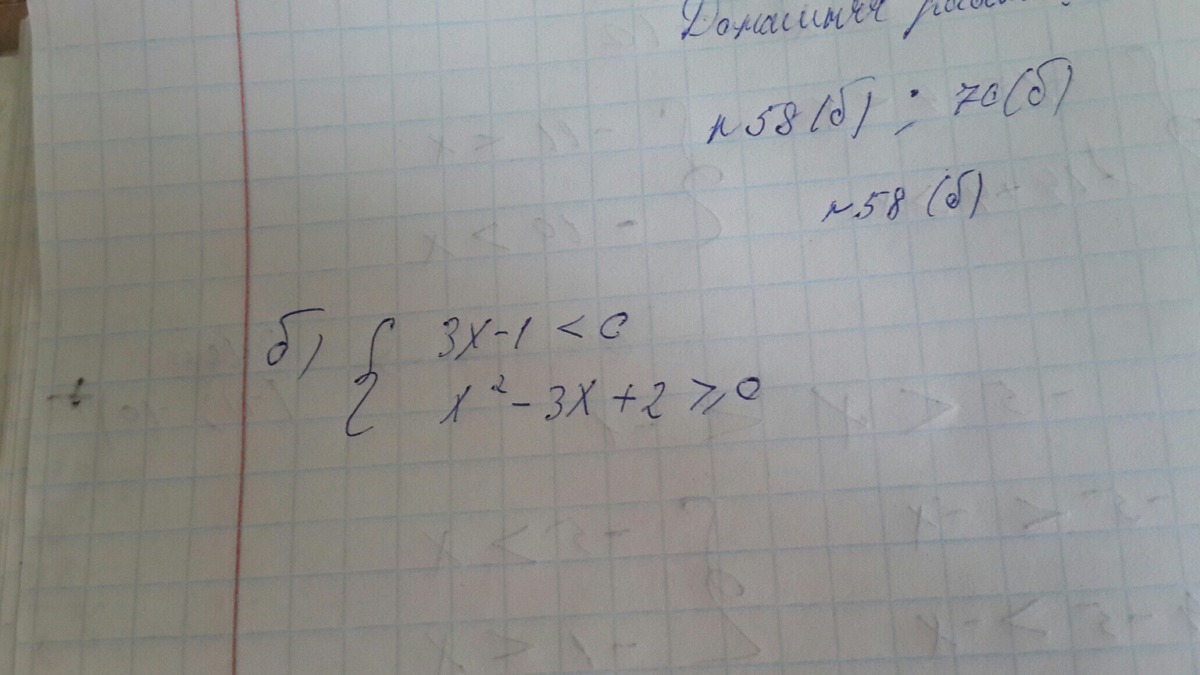 Домашняя
№58(б); 70(б)
№58 (б)
б) { 3x-1 < 0
x² - 3x + 2 ⩾ 0